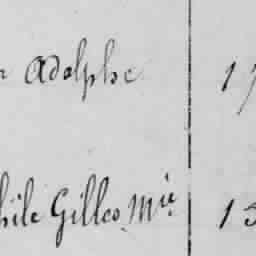 Adolphe 17
hile Gilles Mie 13